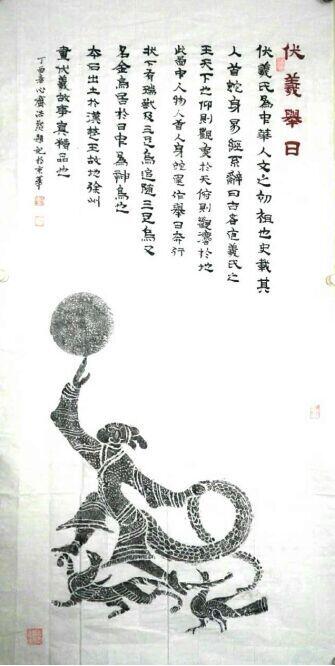 伏羲舉日
伏羲氏為中華人文之初祖也史載其
人首蛇身易經系辭曰古者庖羲氏之
王天下也仰則觀象於天俯則觀灋於地
此圖中人物人首人身蛇尾作舉日奔行
狀下有瑞獸及三足烏追隨三足烏又
名金烏居於日中為神烏也
本石出土於漢楚王故地徐州
畫伏羲故事實精品也
丁酉 心齋 題記於京華